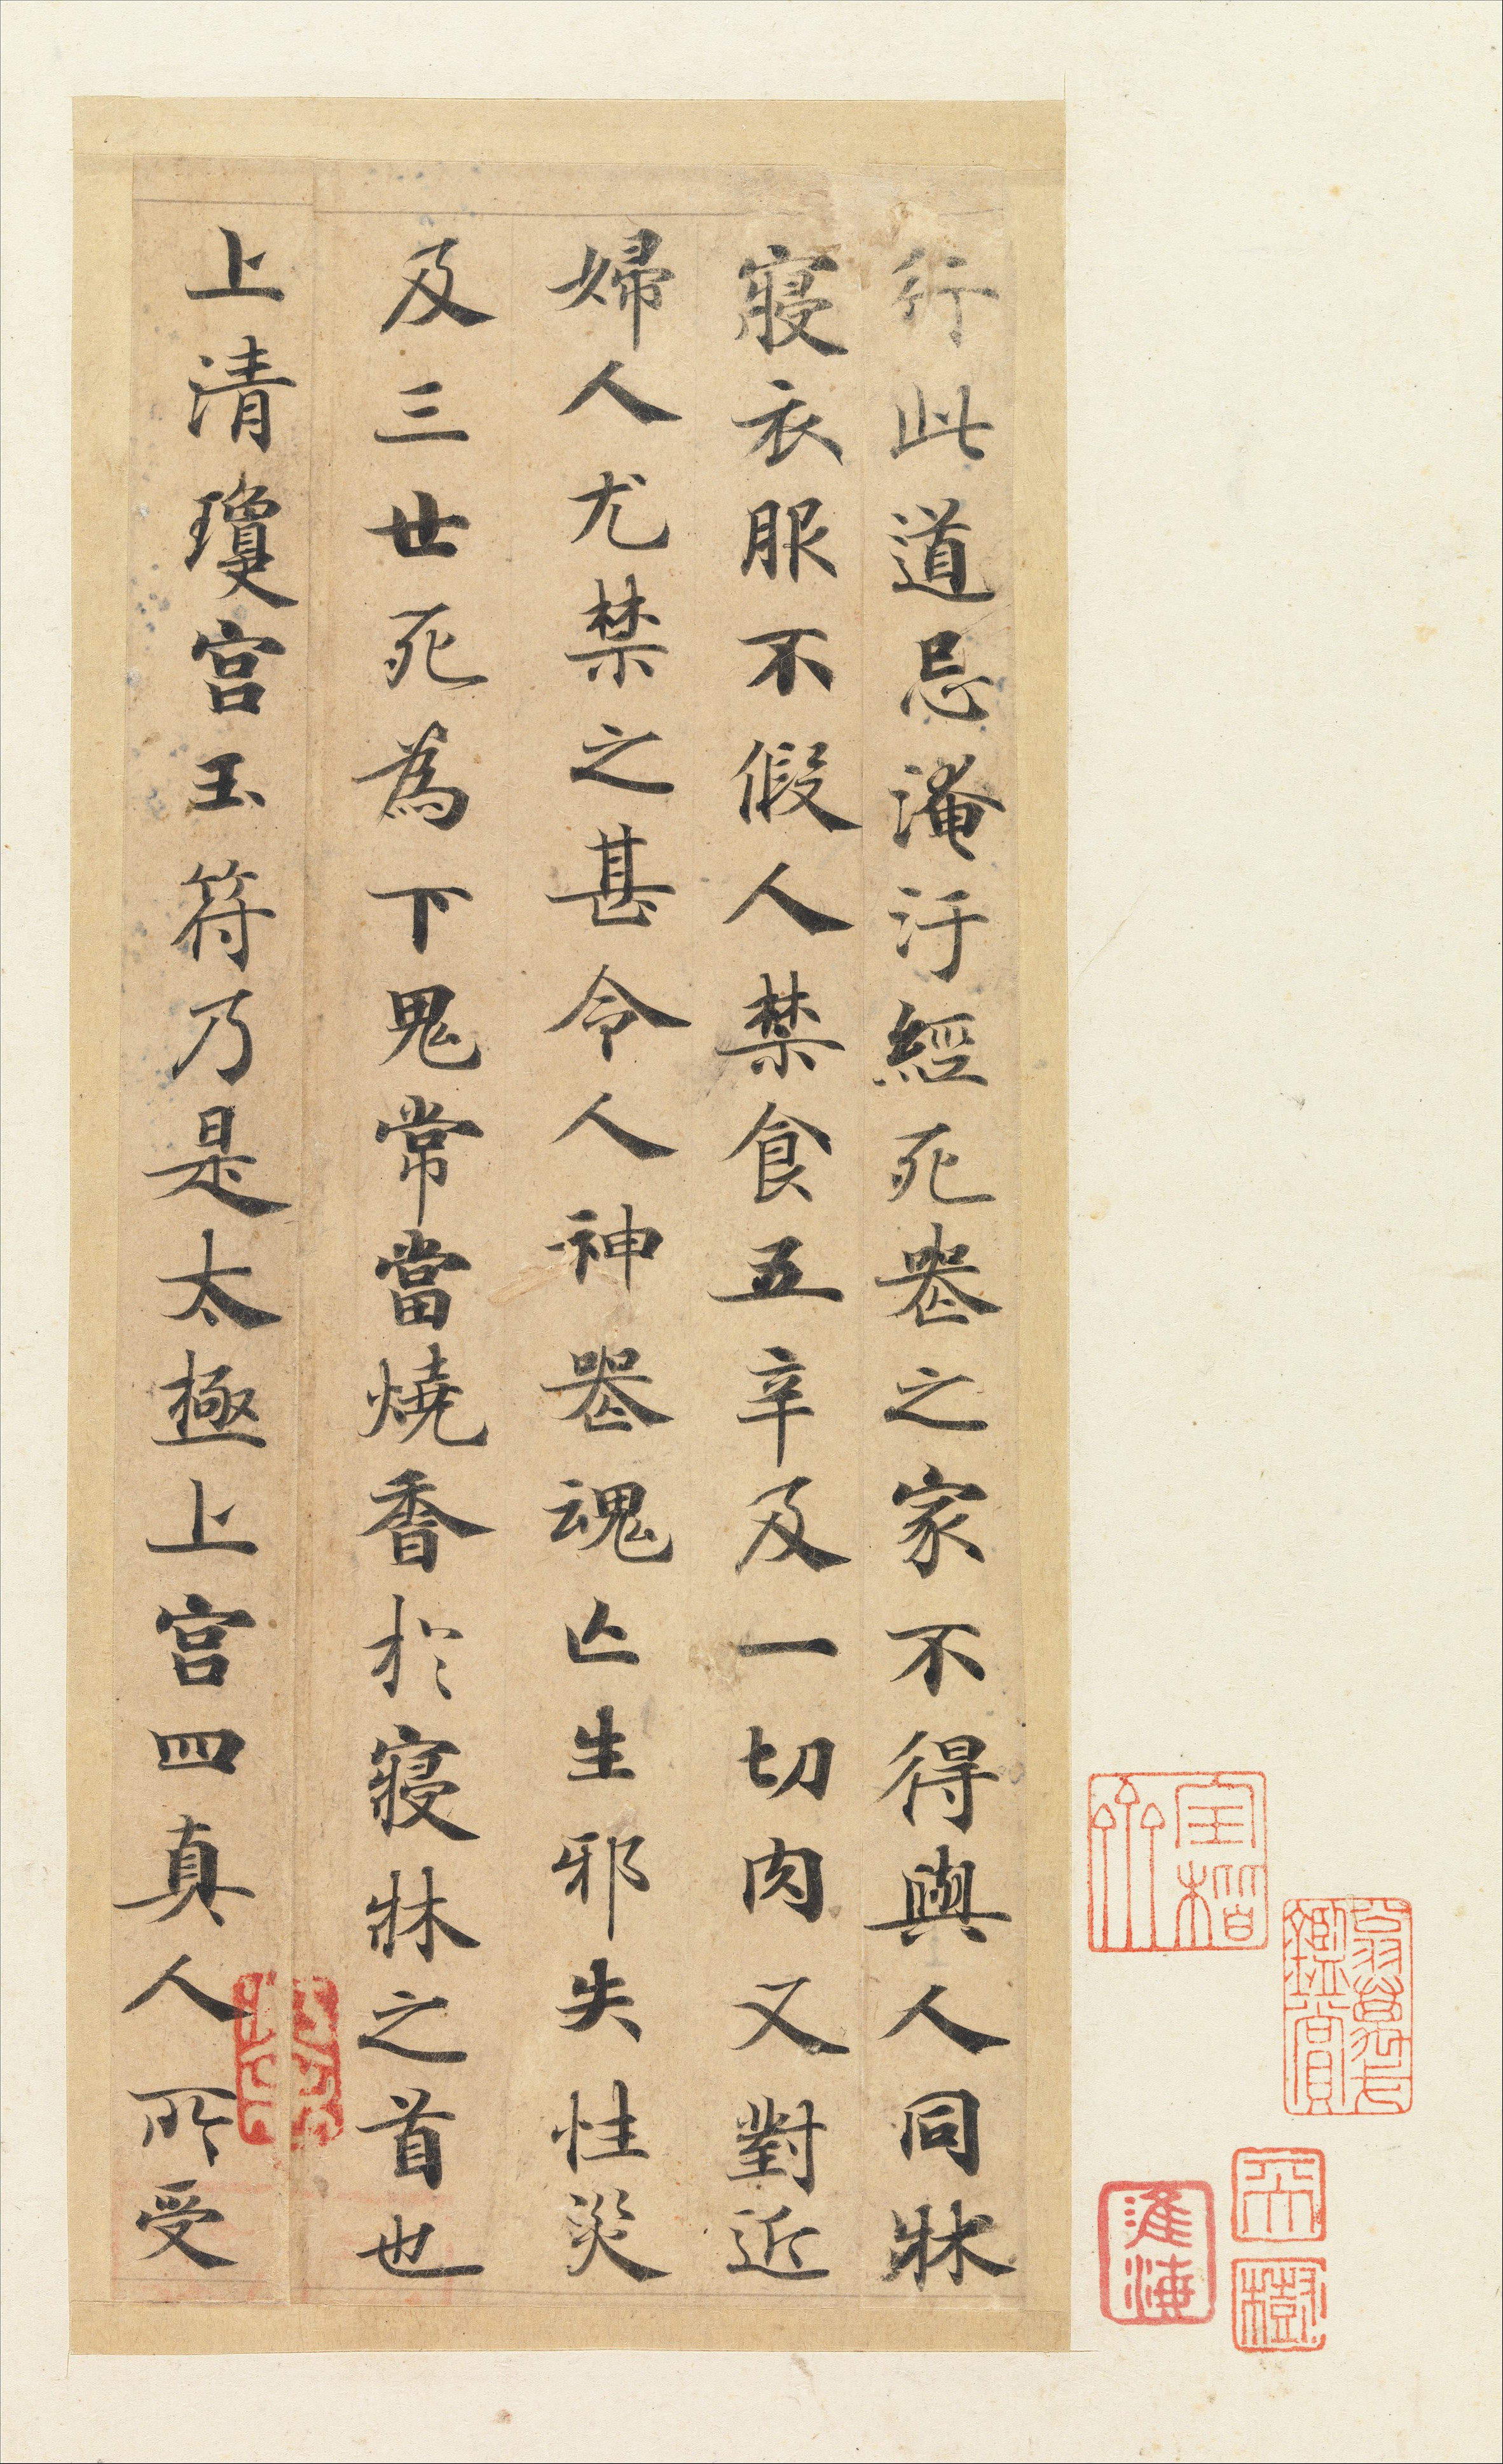 行此道忌淹汙經死喪之家不得與人同牀
寢衣服不假人禁食五辛及一切肉又對近
婦人尤禁之甚令人神喪魂亡生邪失性災
及三世死為下鬼常當燒香於寢牀之首也
上清瓊宮玉符乃是太極上宮四真人所受
淮海